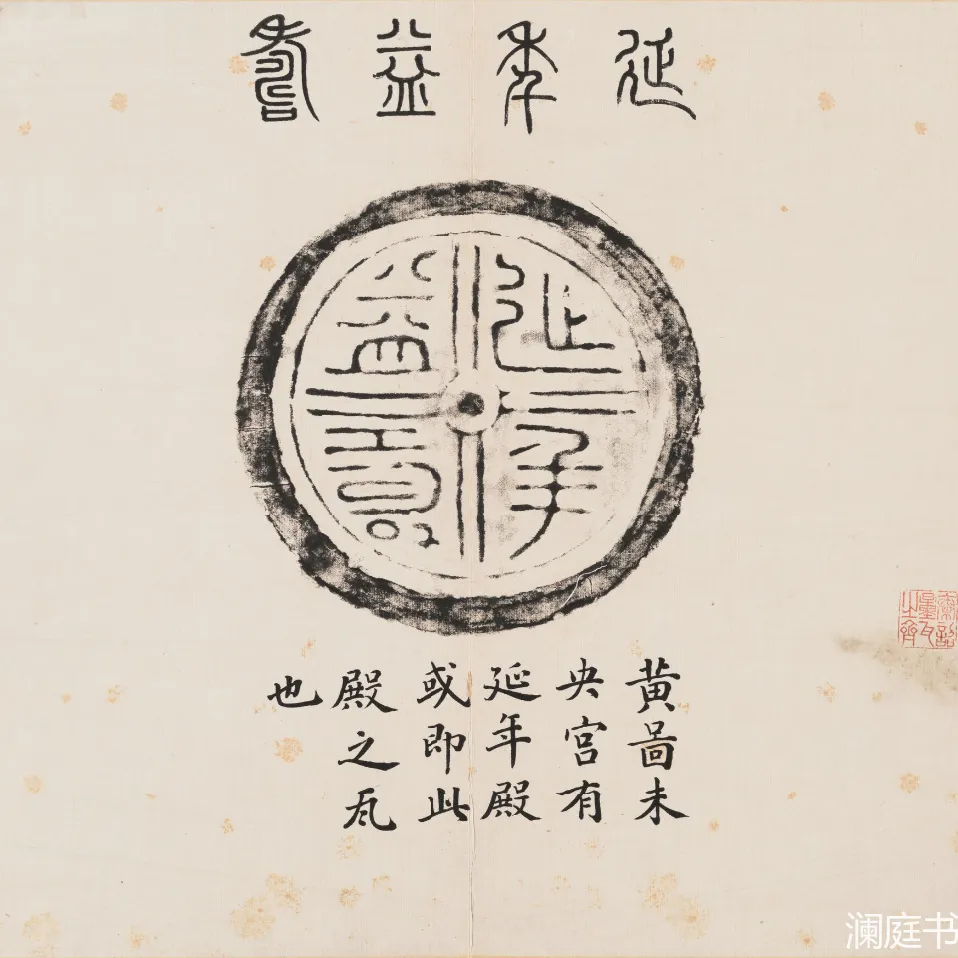 延年益壽
延年
益壽
黄啚未
央宫有
延年殿
或即此
殿之瓦
也
澜庭书